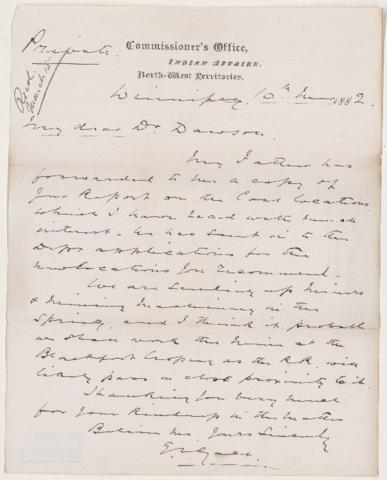 Private.
Commissioner's Office,
INDIAN AFFAIRS.
North-West Territories.
Recd.
March 15
Winnipeg 10th 1882
My dear Dr. Dawson.
My Father has
forwarded to me a copy of
your Report on the Coal locations
which I have read with much
interest. He has sent in to the
Dept applications for the
new locations you recommend.
We are sending up Miners
& Mining Machinery in the
Spring, and I think it probable
we shall work the Mine at the
Blackfoot Crossing as the R.R. will
likely pass in close proximity to it.
Thanking you very much
for your kindness in the matter
Believe me, Yours Sincerely